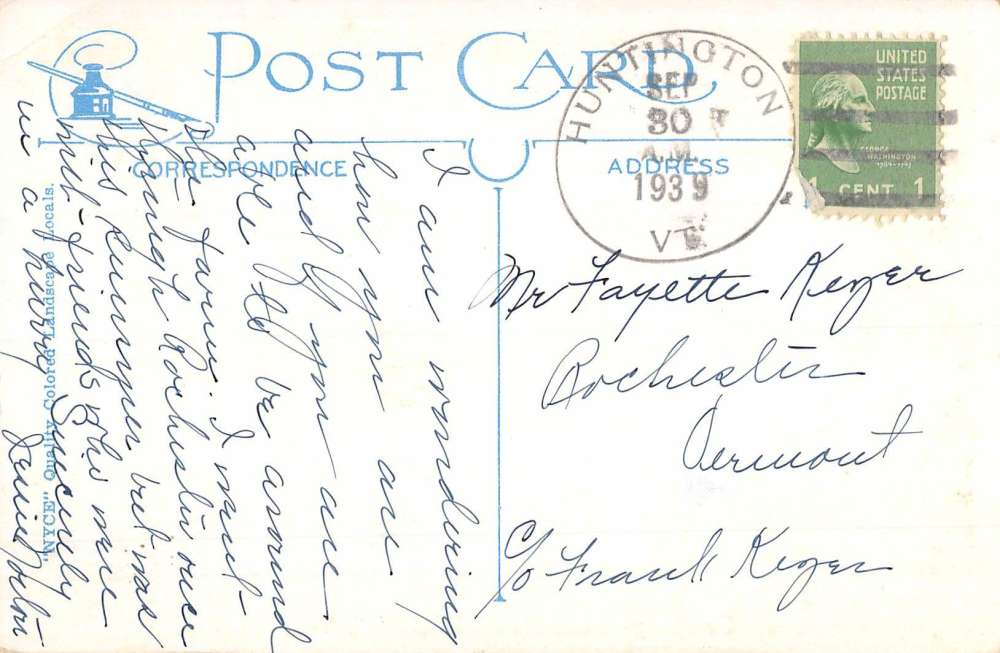 POST CARD
CORRESPONDENCE
ADDRESS
HUNTINGTON
SEP
30
A.M.
1939
VT.
UNITED
STATES
POSTAGE
GEORGE
WASHINGTON
1789-1797
1 CENT 1
Mr Fayette Keyer
Rochester
Vermont
c/o Frank Keyer
I am wondering
how you are
and if you are
able to be around
the farm. I went
through Rochester once
this summer but was
with friends who were
in a hurry Sincerely
"NYCE" Quality Colored Landscape Locals.